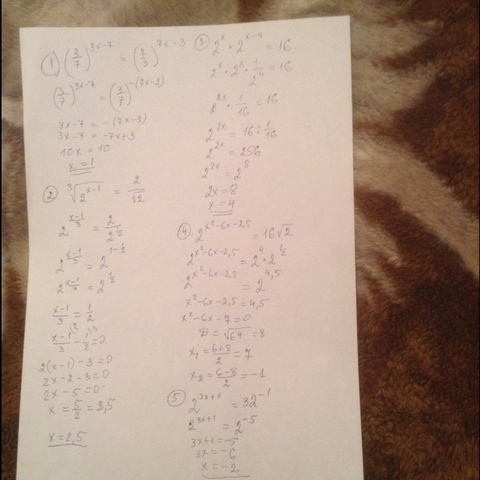 1) (3/7)^(3x-7) = (7/3)^(7x-3)
(3/7)^(3x-7) = (3/7)^(-(7x-3))
3x-7 = -(7x-3)
3x-7 = -7x+3
10x = 10
x = 1
2) ∛(2^(x-1)) = 2/√2
2^((x-1)/3) = 2/2^(1/2)
2^((x-1)/3) = 2^(1-1/2)
2^((x-1)/3) = 2^(1/2)
(x-1)/3 = 1/2
(x-1)/3 - 1/2 = 0
2(x-1)-3=0
2x-2-3=0
2x-5=0
x = 5/2 = 2,5
x=2,5
3) 2^x · 2^(x-4) = 16
2^x · 2^x · 1/2^4 = 16
2^(2x) · 1/16 = 16
2^(2x) = 16 : 1/16
2^(2x) = 256
2^(2x) = 2^8
2x = 8
x = 4
4) 2^(x²-6x-2,5) = 16√2
2^(x²-6x-2,5) = 2^4 · 2^(1/2)
2^(x²-6x-2,5) = 2^(4,5)
x²-6x-2,5 = 4,5
x²-6x-7=0
D = √64 = 8
x₁ = (6+8)/2 = 7
x₂ = (6-8)/2 = -1
5) 2^(3x+1) = 32^(-1)
2^(3x+1) = 2^(-5)
3x+1 = -5
3x = -6
x = -2